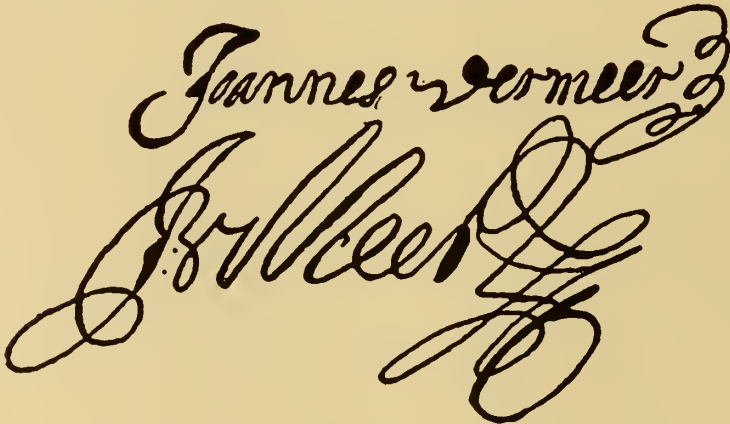 Joannes vermeer
J. v Meer